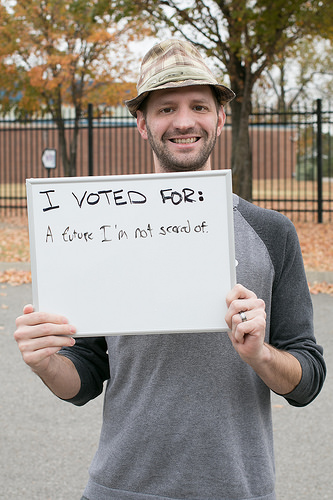 I VOTED FOR:
A future I'm not scared of.